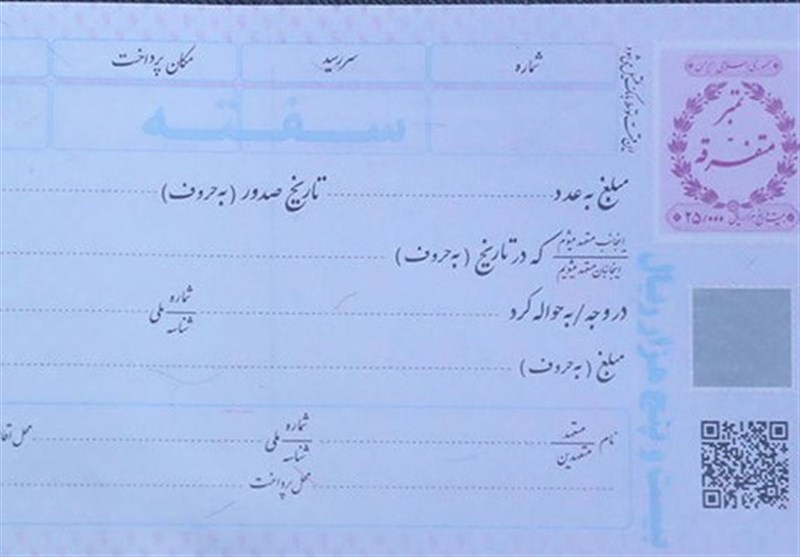 شماره سررسید مکان پرداخت
سفته
جمهوری اسلامی ایران
تمبر
متفرقه
۲۵/۰۰۰
مبلغ به عدد تاریخ صدور (به حروف)
اینجانب متعهد میشوم
اینجانبان متعهد میشویم
که در تاریخ (به حروف)
در وجه/به حواله کرد شماره
شناسه ملی
مبلغ (به حروف)
نام متعهد
متعهدین
شماره
شناسه ملی
محل
محل پرداخت
بیست و پنج هزار ریال